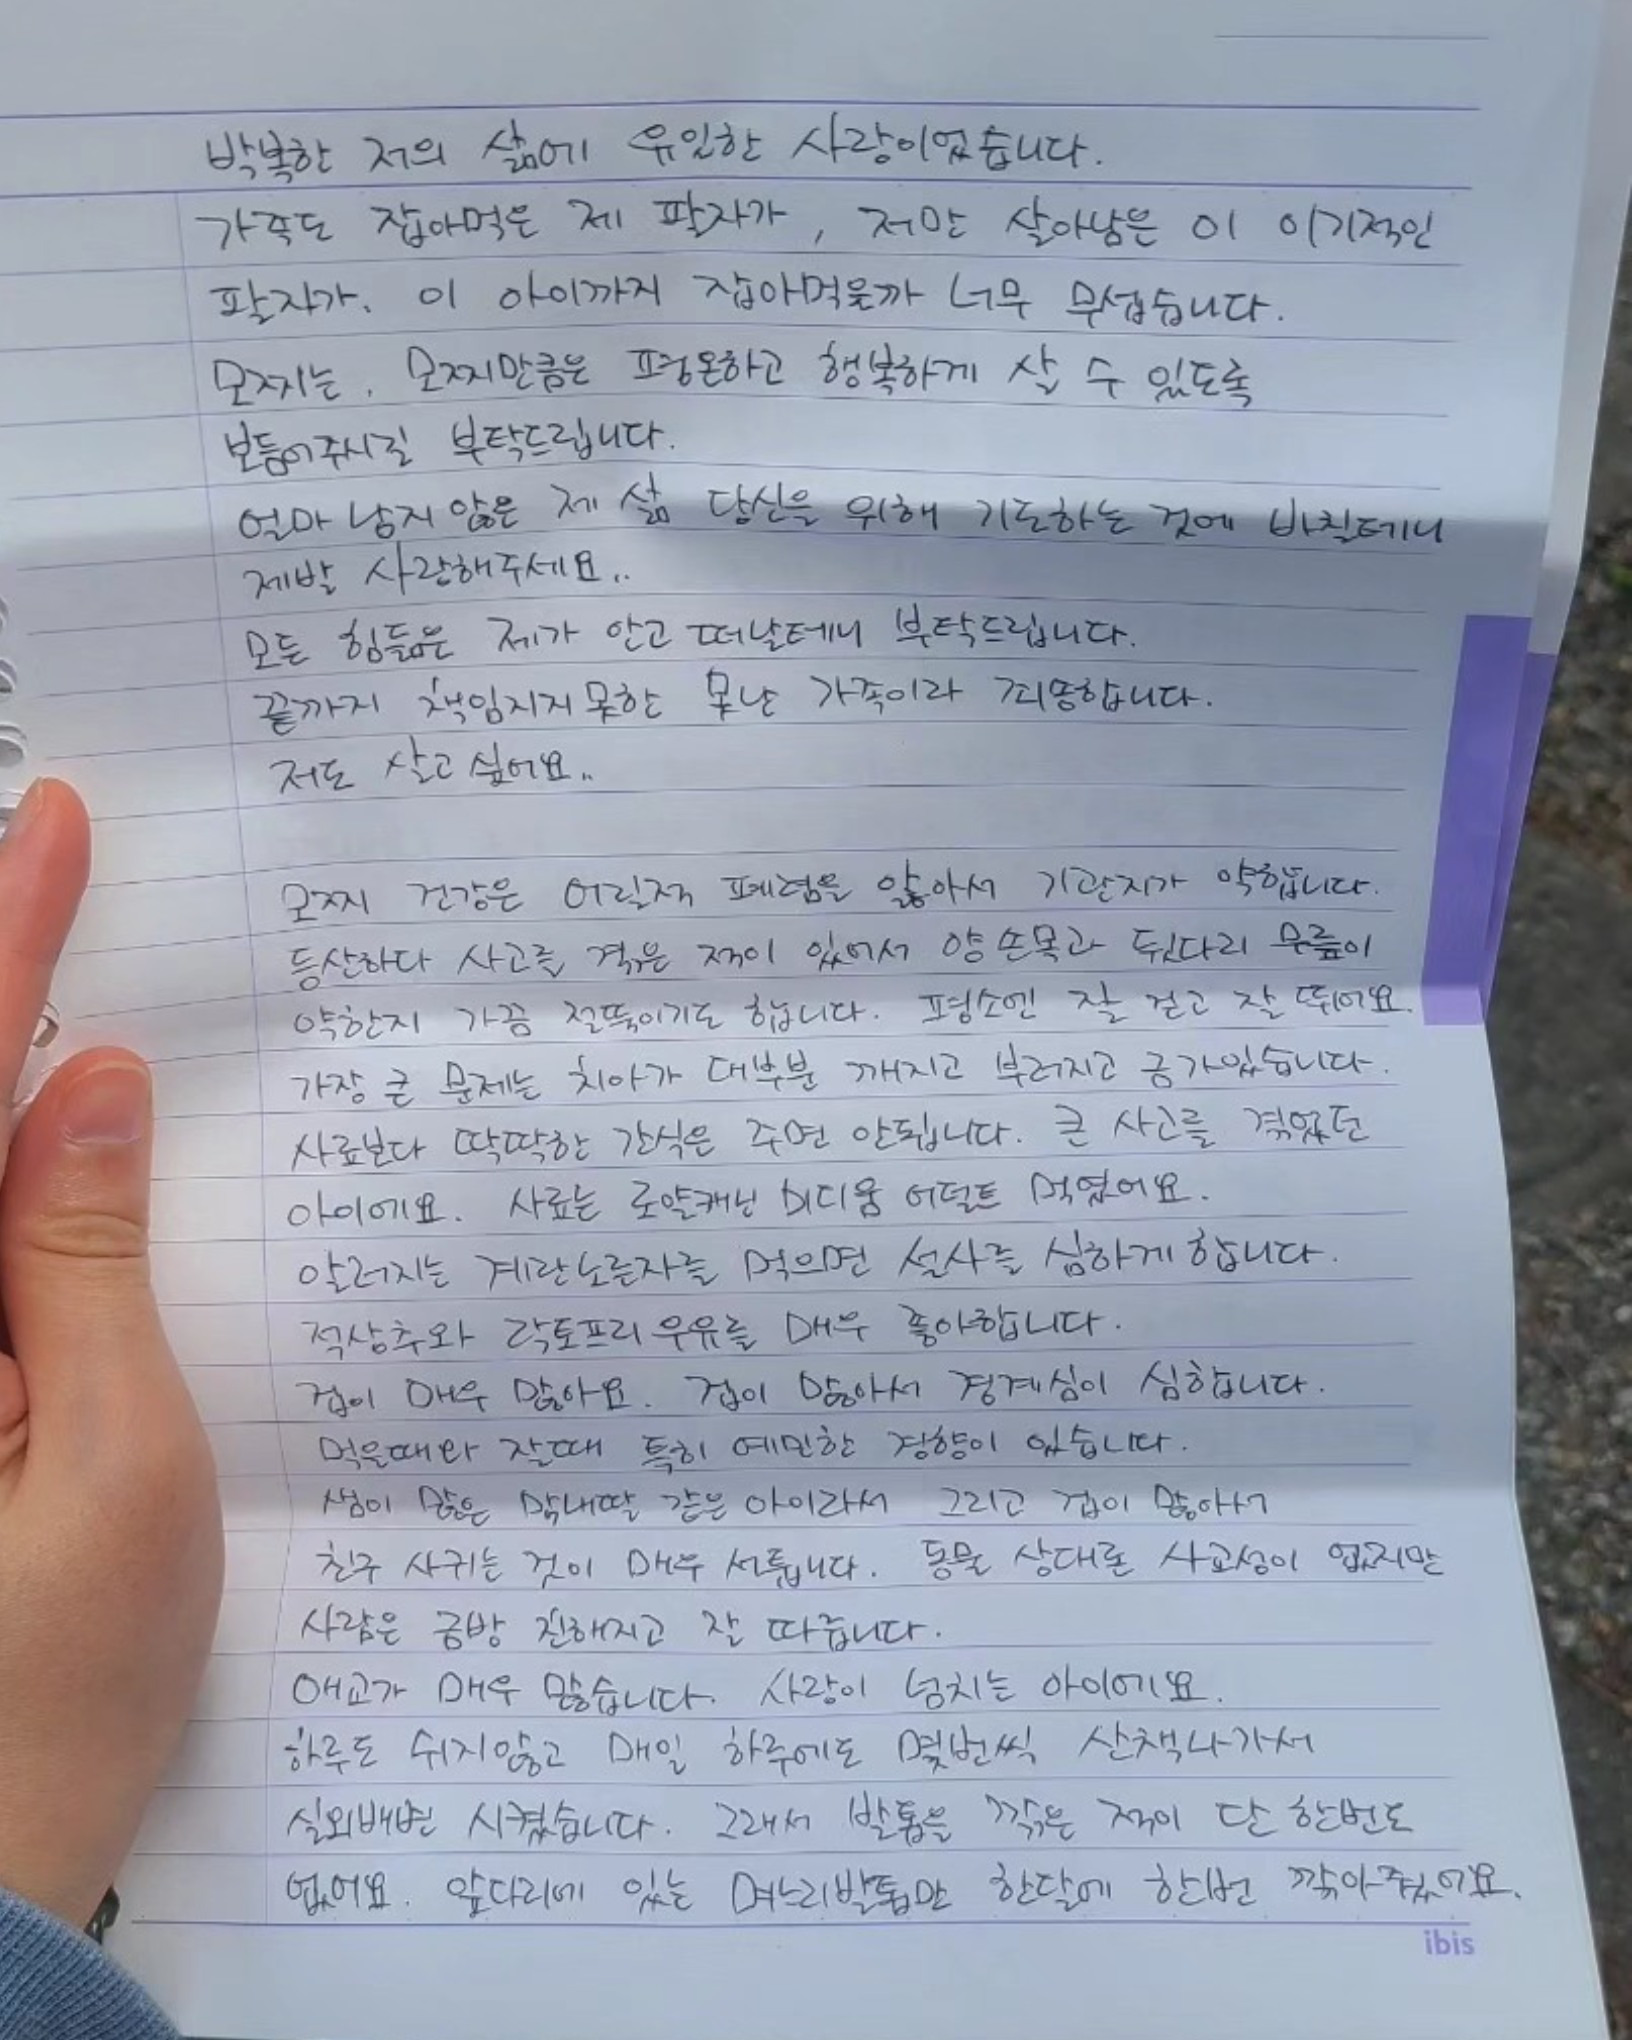 박복한 저의 삶에 유일한 사랑이었습니다.
가족도 잡아먹은 제 팔자가, 저만 살아남은 이 이기적인
팔자가. 이 아이까지 잡아먹을까 너무 무섭습니다.
모찌는, 모찌만큼은 평온하고 행복하게 살 수 있도록
보듬어주시길 부탁드립니다.
얼마 남지 않은 제 삶 당신을 위해 기도하는 것에 바칠테니
제발 사랑해주세요..
모든 힘듦은 제가 안고 떠날테니 부탁드립니다.
끝까지 책임지지 못한 못난 가족이라 죄송합니다.
저도 살고 싶어요..
모찌 건강은 어릴적 폐렴을 앓아서 기관지가 약합니다.
등산하다 사고를 겪은 적이 있어서 양 손목과 뒷다리 무릎이
약한지 가끔 절뚝이기도 합니다. 평소엔 잘 걷고 잘 뛰어요.
가장 큰 문제는 치아가 대부분 깨지고 부러지고 금가있습니다.
사료보다 딱딱한 간식은 주면 안됩니다. 큰 사고를 겪었던
아이에요. 사료는 로얄캐닌 미디움 어덜트 먹였어요.
알러지는 계란노른자를 먹으면 설사를 심하게 합니다.
적상추와 락토프리 우유를 매우 좋아합니다.
겁이 매우 많아요. 겁이 많아서 경계심이 심합니다.
먹을때와 잘때 특히 예민한 경향이 있습니다.
샘이 많은 막내딸 같은 아이라서 그리고 겁이 많아서
친구 사귀는 것이 매우 서툽니다. 동물 상대론 사교성이 없지만
사람은 금방 친해지고 잘 따릅니다.
애교가 매우 많습니다. 사랑이 넘치는 아이에요.
하루도 쉬지않고 매일 하루에도 몇번씩 산책나가서
실외배변 시켰습니다. 그래서 발톱을 깎은 적이 단 한번도
없어요. 앞다리에 있는 며느리발톱만 한달에 한번 깎아주었어요.
ibis